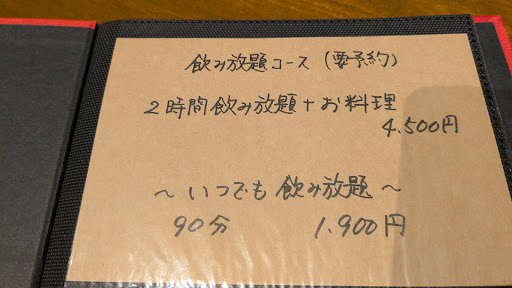 飲み放題コース(要予約)
2時間飲み放題+お料理
4.500円
~いつでも飲み放題~
90分 1.900円